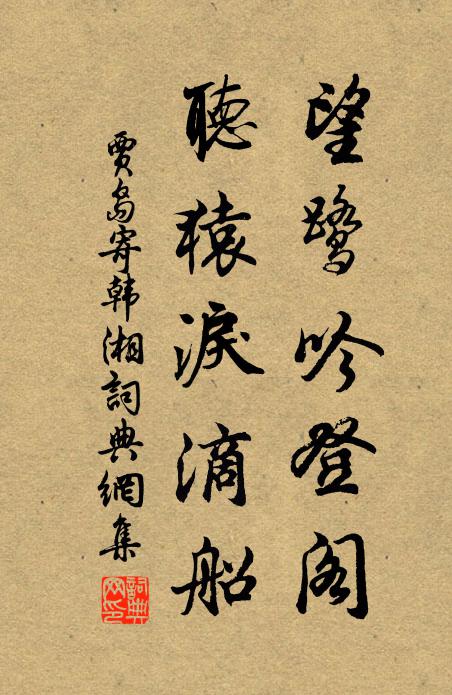 望鷺吟登閣
聽猿淚滴船
賈島寄韓湘詞典網集
詞典網印